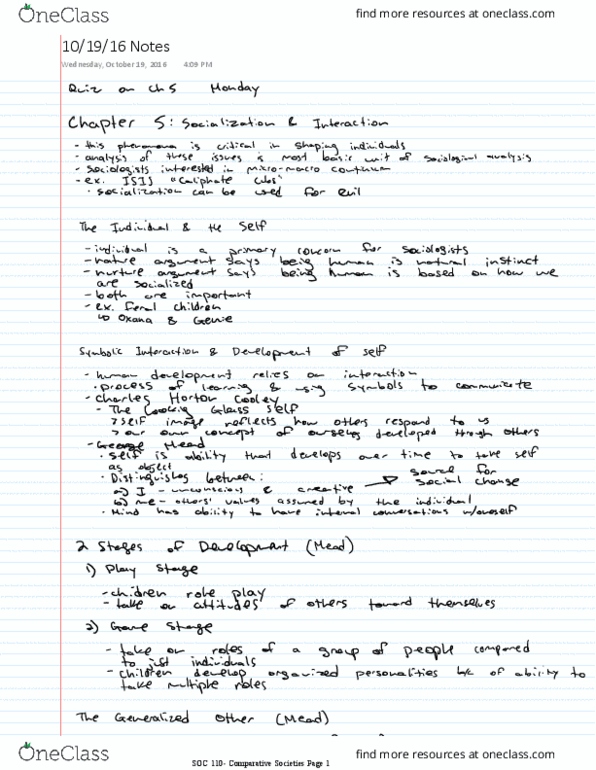 OneClass
find more resources at oneclass.com
10/19/16 Notes
Wednesday, October 19, 2016 4:09 PM
Quiz on Ch 5 Monday
Chapter 5: Socialization & Interaction
- this phenomena is critical in shaping individuals
- analysis of these issues is most basic unit of sociological analysis
- sociologists interested in micro-macro continuum
- ex. ISIS "Caliphate cubs"
· socialization can be used for evil
The Individual & the Self
- individual is a primary concern for sociologists
- nature argument says being human is natural instinct
- nurture argument says being human is based on how we
are socialized
- both are important
- ex. feral children
↳ Oxana & Genie
Symbolic Interaction & Development of self
- human development relies on interaction
· process of learning & using symbols to communicate
- Charles Horton Cooley
- The Looking Glass Self
> self image reflects how others respond to us
> our own concept of ourselves developed through others
- George Mead
· self is ability that develops over time to take self
as object
· Distinguishes between:
a) I - unconscious & creative → source for
social change
b) me - others' values assumed by the individual
· Mind has ability to have internal conversations w/oneself
2 Stages of Development (Mead)
1) Play Stage
- children role play
- take on attitudes of others toward themselves
2) Game Stage
- take on roles of a group of people compared
to just individuals
- children develop organized personalities b/c of ability to
take multiple roles
The Generalized Other (Mead)
SOC 110- Comparative Societies Page 1
OneClass
find more resources at oneclass.com